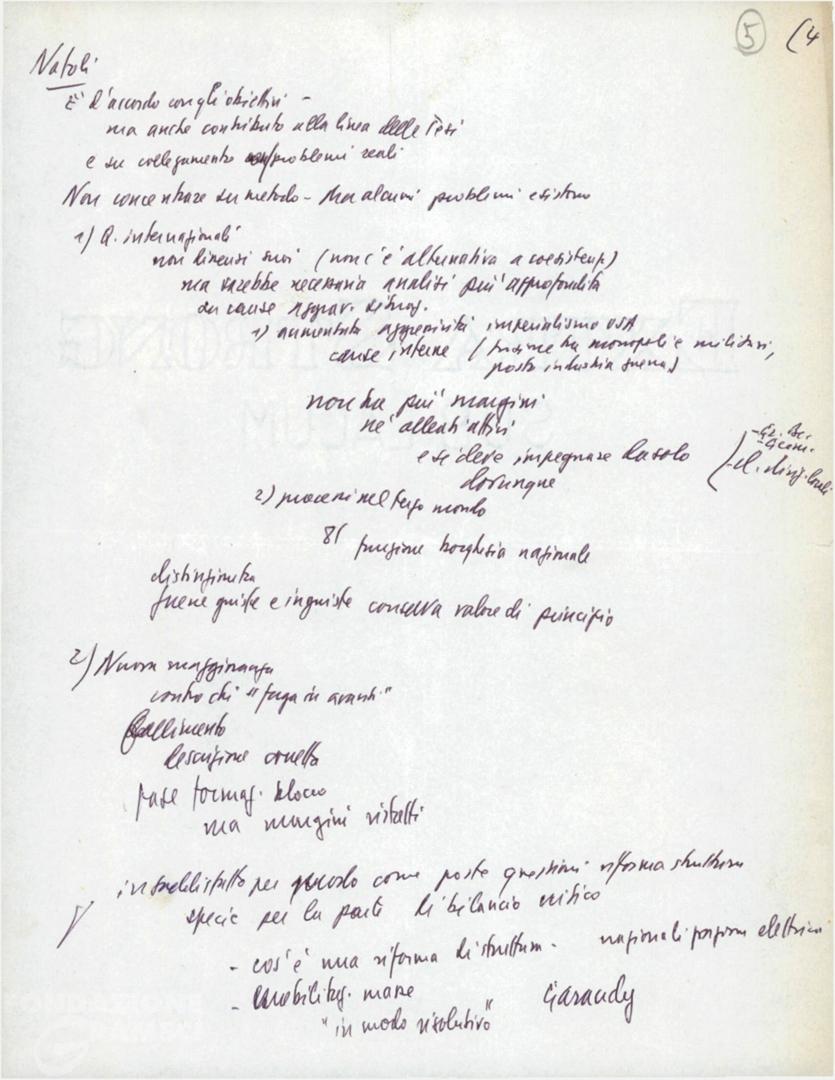 5 (4
Natoli
E' d'accordo con gli obiettivi -
ma anche contributo alla linea delle Tesi
e su collegamento problemi reali
Non concentrare su metodo - Ma alcuni problemi esistono
1) Q. internazionali
non dimensi suoi (non c'è alternativa a coesistenz.)
ma sarebbe necessaria analisi più approfondita
su cause aggrav. situaz.
1) aumentata aggressività imperialismo USA
cause interne (fusione tra monopoli e militari,
posto industria guerra)
non ha più margini
né alleati attivi
e si deve impegnare da solo
dovunque
2) processi nel terzo mondo
8( funzione borghesia nazionale
distinzione tra
guerre giuste e ingiuste conserva valore di principio
2) Nuova maggioranza
contro chi "fuga in avanti"
fallimento
descrizione corretta
fase formaz. blocco
ma margini ristretti
insoddisfatto per modo come poste questioni riforma struttura
specie per la parte di bilancio critico
- cos'è una riforma di struttura - nazionalizzazione elettrica
- mobilitaz. masse Garaudy
"in modo risolutivo"